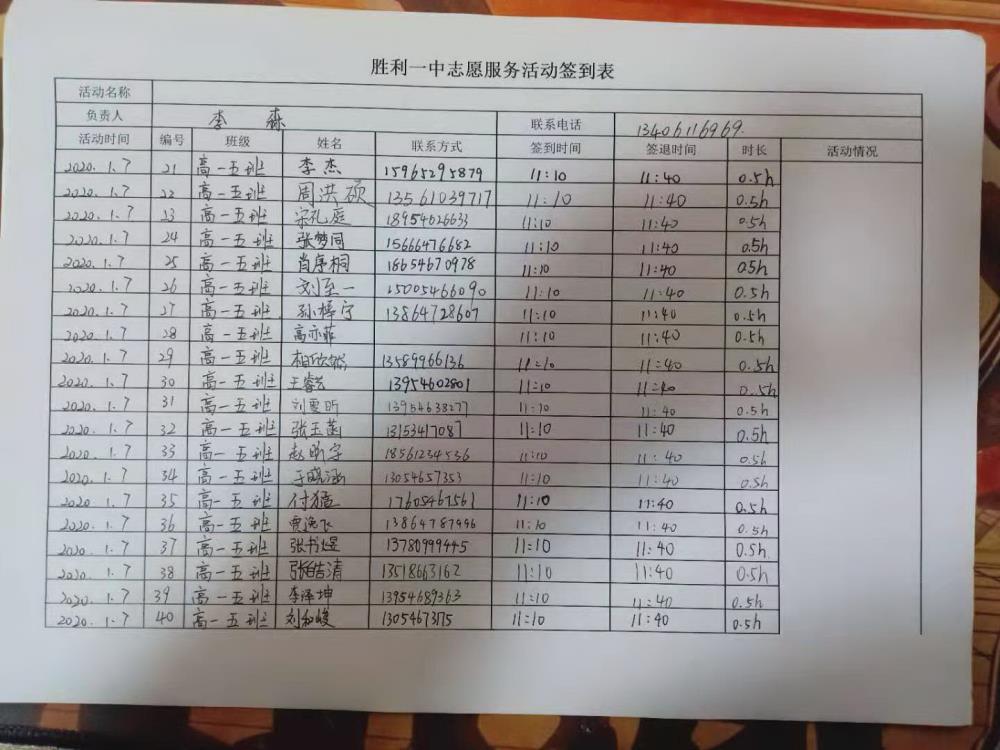 胜利一中志愿服务活动签到表
活动名称
负责人 李森 联系电话 13406116969
活动时间 编号 班级 姓名 联系方式 签到时间 签退时间 时长 活动情况
2020.1.7 21 高一五班 李杰 15965295879 11:10 11:40 0.5h
2020.1.7 22 高一五班 周洪硕 13561039717 11:10 11:40 0.5h
2020.1.7 23 高一五班 宋孔庭 18954626633 11:10 11:40 0.5h
2020.1.7 24 高一五班 张梦同 15666476682 11:10 11:40 0.5h
2020.1.7 25 高一五班 肖序桐 18654670978 11:10 11:40 0.5h
2020.1.7 26 高一五班 刘至一 15005466090 11:10 11:40 0.5h
2020.1.7 27 高一五班 孙梓宁 13864728607 11:10 11:40 0.5h
2020.1.7 28 高一五班 高亦菲 11:10 11:40 0.5h
2020.1.7 29 高一五班 相欣然 13589966136 11:10 11:40 0.5h
2020.1.7 30 高一五班 王睿 13954602801 11:10 11:40 0.5h
2020.1.7 31 高一五班 刘雯昕 13954638277 11:10 11:40 0.5h
2020.1.7 32 高一五班 张玉菡 13153417087 11:10 11:40 0.5h
2020.1.7 33 高一五班 赵昕宇 18561234536 11:10 11:40 0.5h
2020.1.7 34 高一五班 于晓涵 13054657353 11:10 11:40 0.5h
2020.1.7 35 高一五班 付 17605467561 11:10 11:40 0.5h
2020.1.7 36 高一五班 贾逸飞 13864787996 11:10 11:40 0.5h
2020.1.7 37 高一五班 张书煜 13780999445 11:10 11:40 0.5h
2020.1.7 38 高一五班 张皓清 13518663162 11:10 11:40 0.5h
2020.1.7 39 高一五班 李泽坤 13954689363 11:10 11:40 0.5h
2020.1.7 40 高一五班 刘和峻 13054673175 11:10 11:40 0.5h